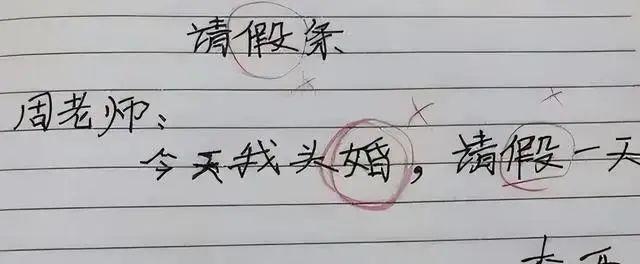 请假条
周老师：
今天我头婚，请假一天